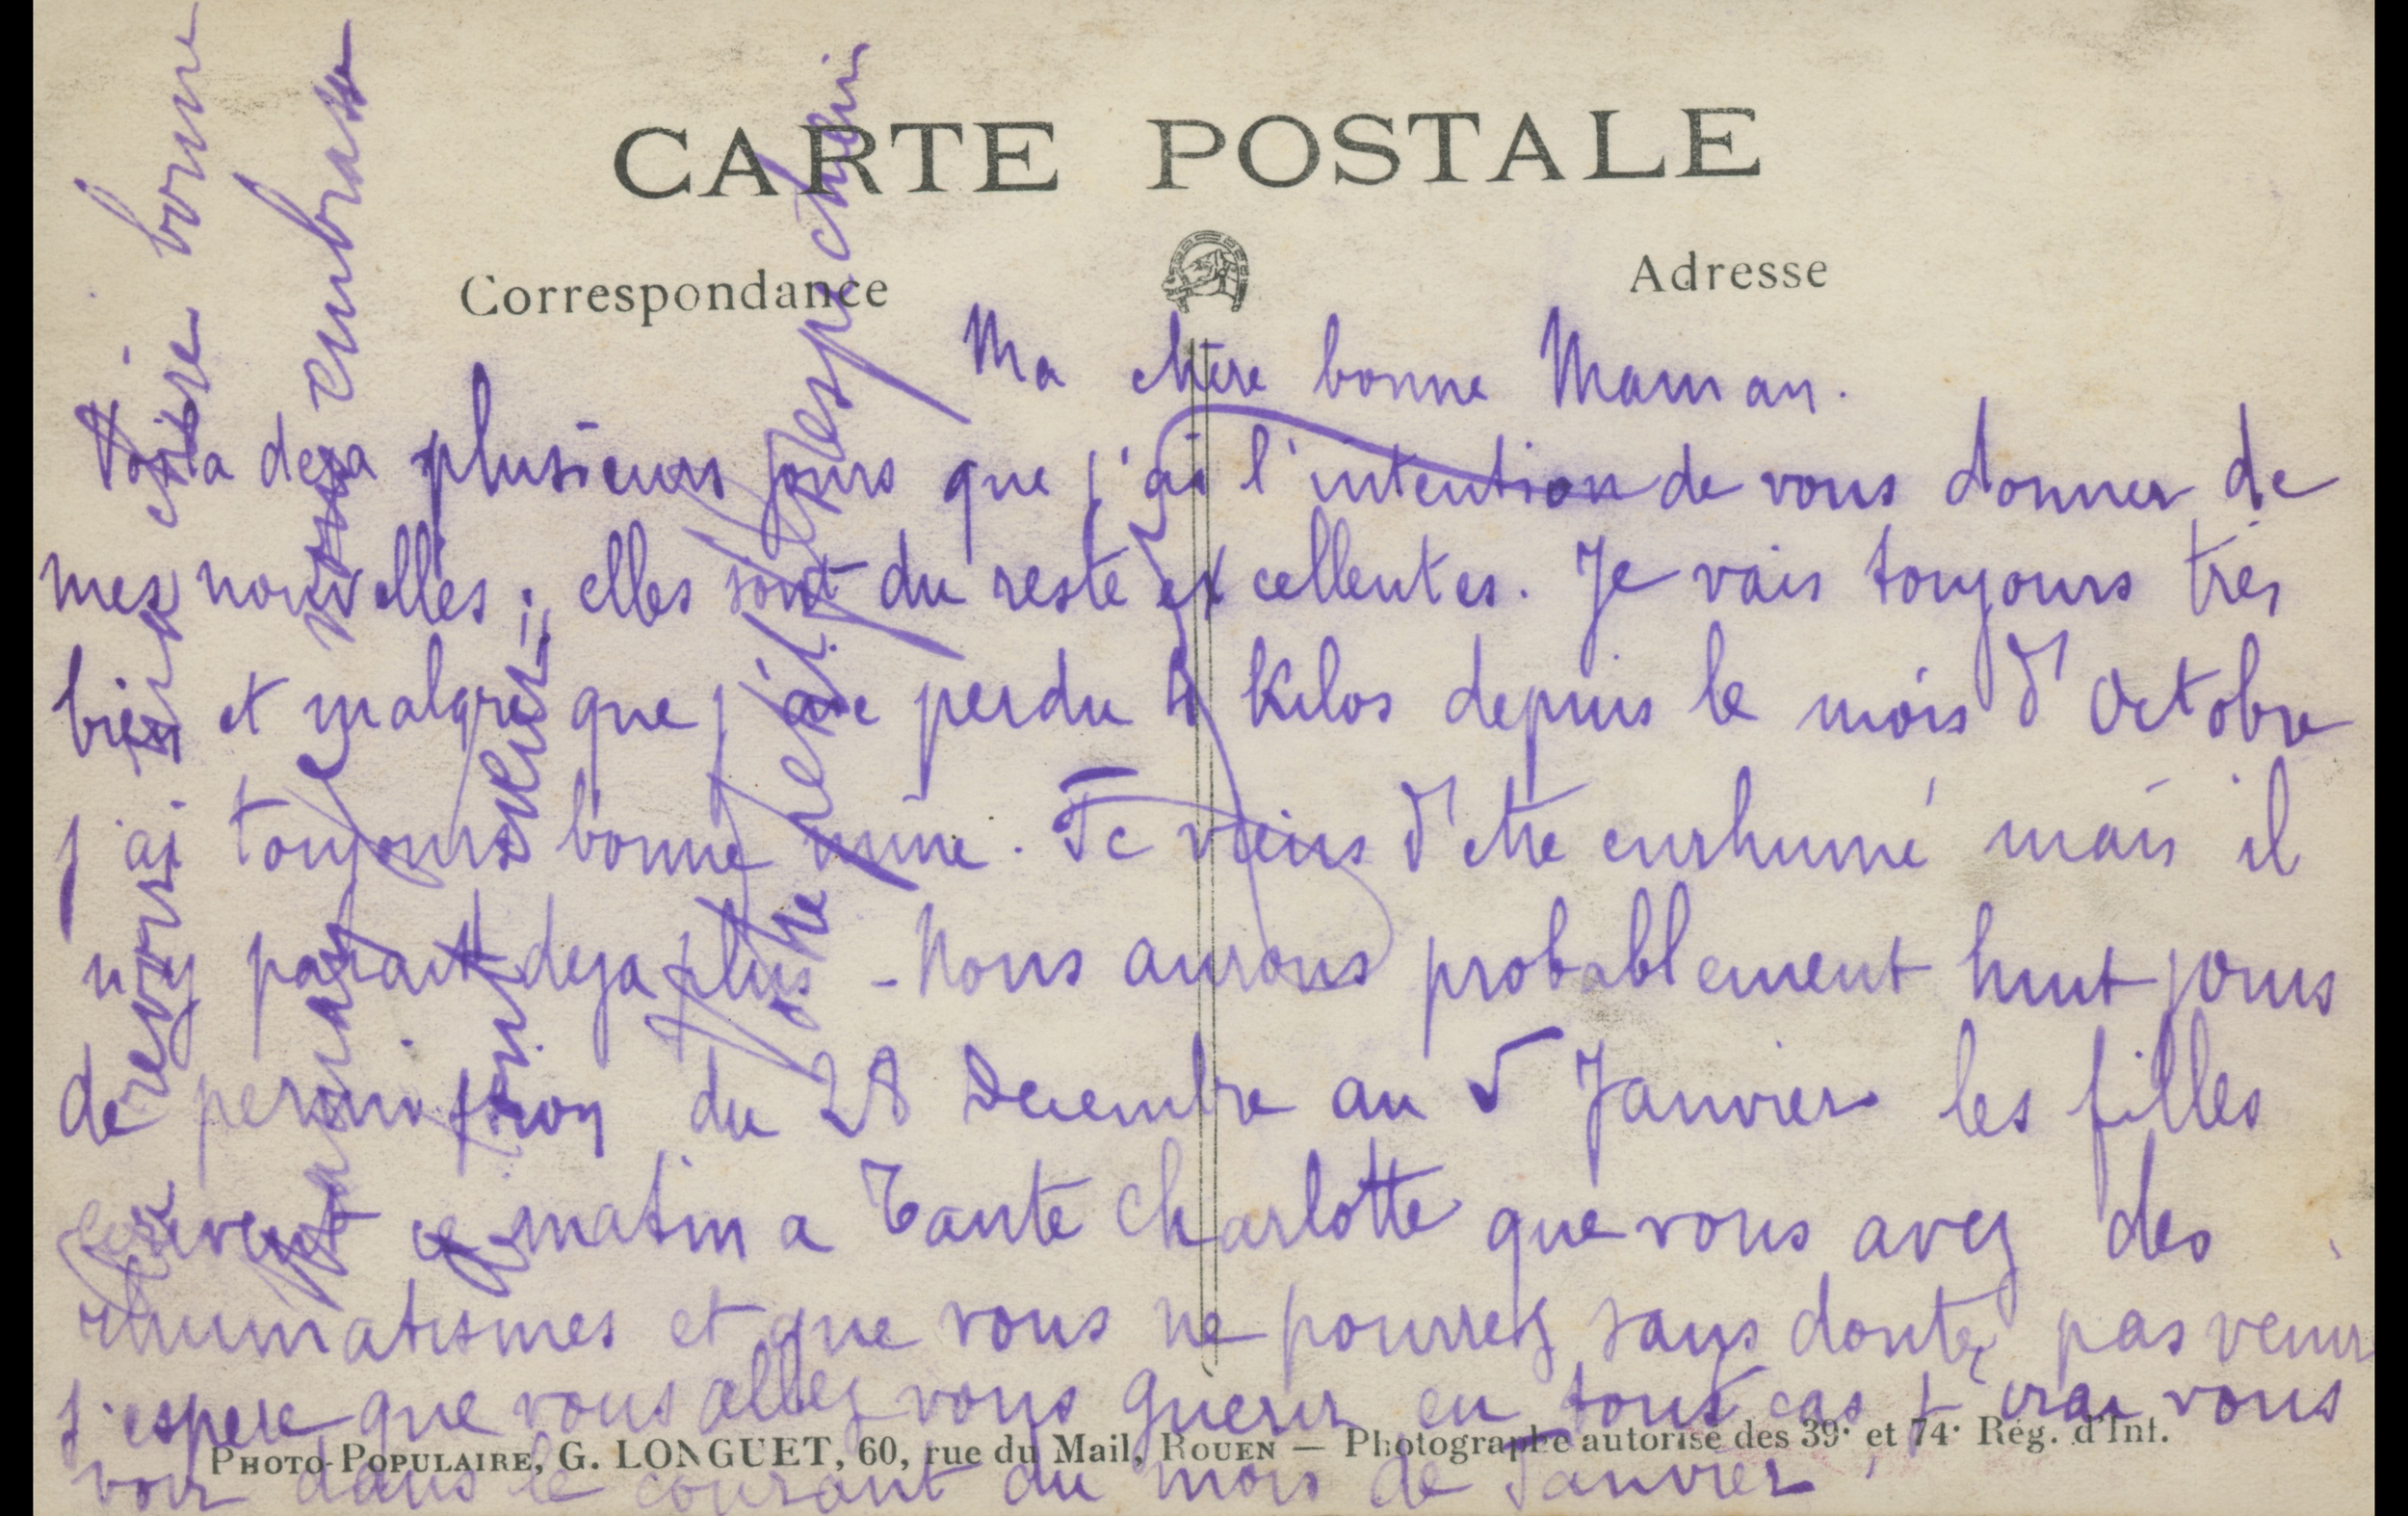 CARTE POSTALE
Correspondance
Adresse
Ma chère bonne Maman.
Voila deja plusieurs jours que j'ai l'intention de vous donner de
mes nouvelles ; elles sont du reste excellentes. Je vais toujours tres
bien et malgré que j'aie perdu 4 Kilos depuis le mois d'Octobre
j'ai toujours bonne mine. Je viens d'etre enrhumé mais il
n'y parait deja plus - Nous aurons probablement huit jours
de permission du 28 Decembre au 5 Janvier les filles
ecrivent ce matin a Tante Charlotte que vous avez des
rhumatismes et que vous ne pourrez sans doute pas venir
j'espere que vous allez vous guerir en tout cas j'irai vous
voir dans le courant du mois de Janvier.
PHOTO-POPULAIRE, G. LONGUET, 60, rue du Mail, ROUEN — Photographe autorisé des 39e et 74e Rég. d'Inf.
revoir chère bonne
Maman je vous embrasse
Votre petit